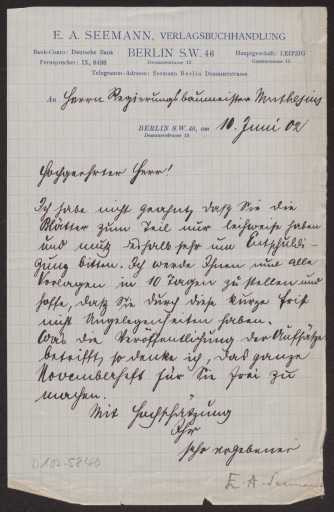 E. A. SEEMANN, VERLAGSBUCHHANDLUNG
Bank-Conto: Deutsche Bank
Fernsprecher: IX, 8496
BERLIN S.W. 46
Dessauerstrasse 13
Hauptgeschäft: LEIPZIG
Telegramm-Adresse: Seemann Berlin Dessauerstrasse
An Herrn Regierungsbaumeister Muthesius
BERLIN S.W. 46, am 10. Juni 02
Dessauerstrasse 13
Hochgeehrter Herr!
Ich habe nicht geahnt, daß Sie die
Blätter zum Teil nur leihweise haben
und muß deshalb sehr um Entschuldi-
gung bitten. Ich werde Ihnen nun alle
Vorlagen in 10 Tagen zustellen und
hoffe, daß Sie durch diese kurze Frist
nicht Ungelegenheiten haben.
Was die Veröffentlichung der Aufsätze
betrifft, so denke ich, das ganze
Novemberheft für Sie frei zu
machen.
Mit Hochschätzung
Ihr
sehr ergebener
E. A. Seemann
D102-5840